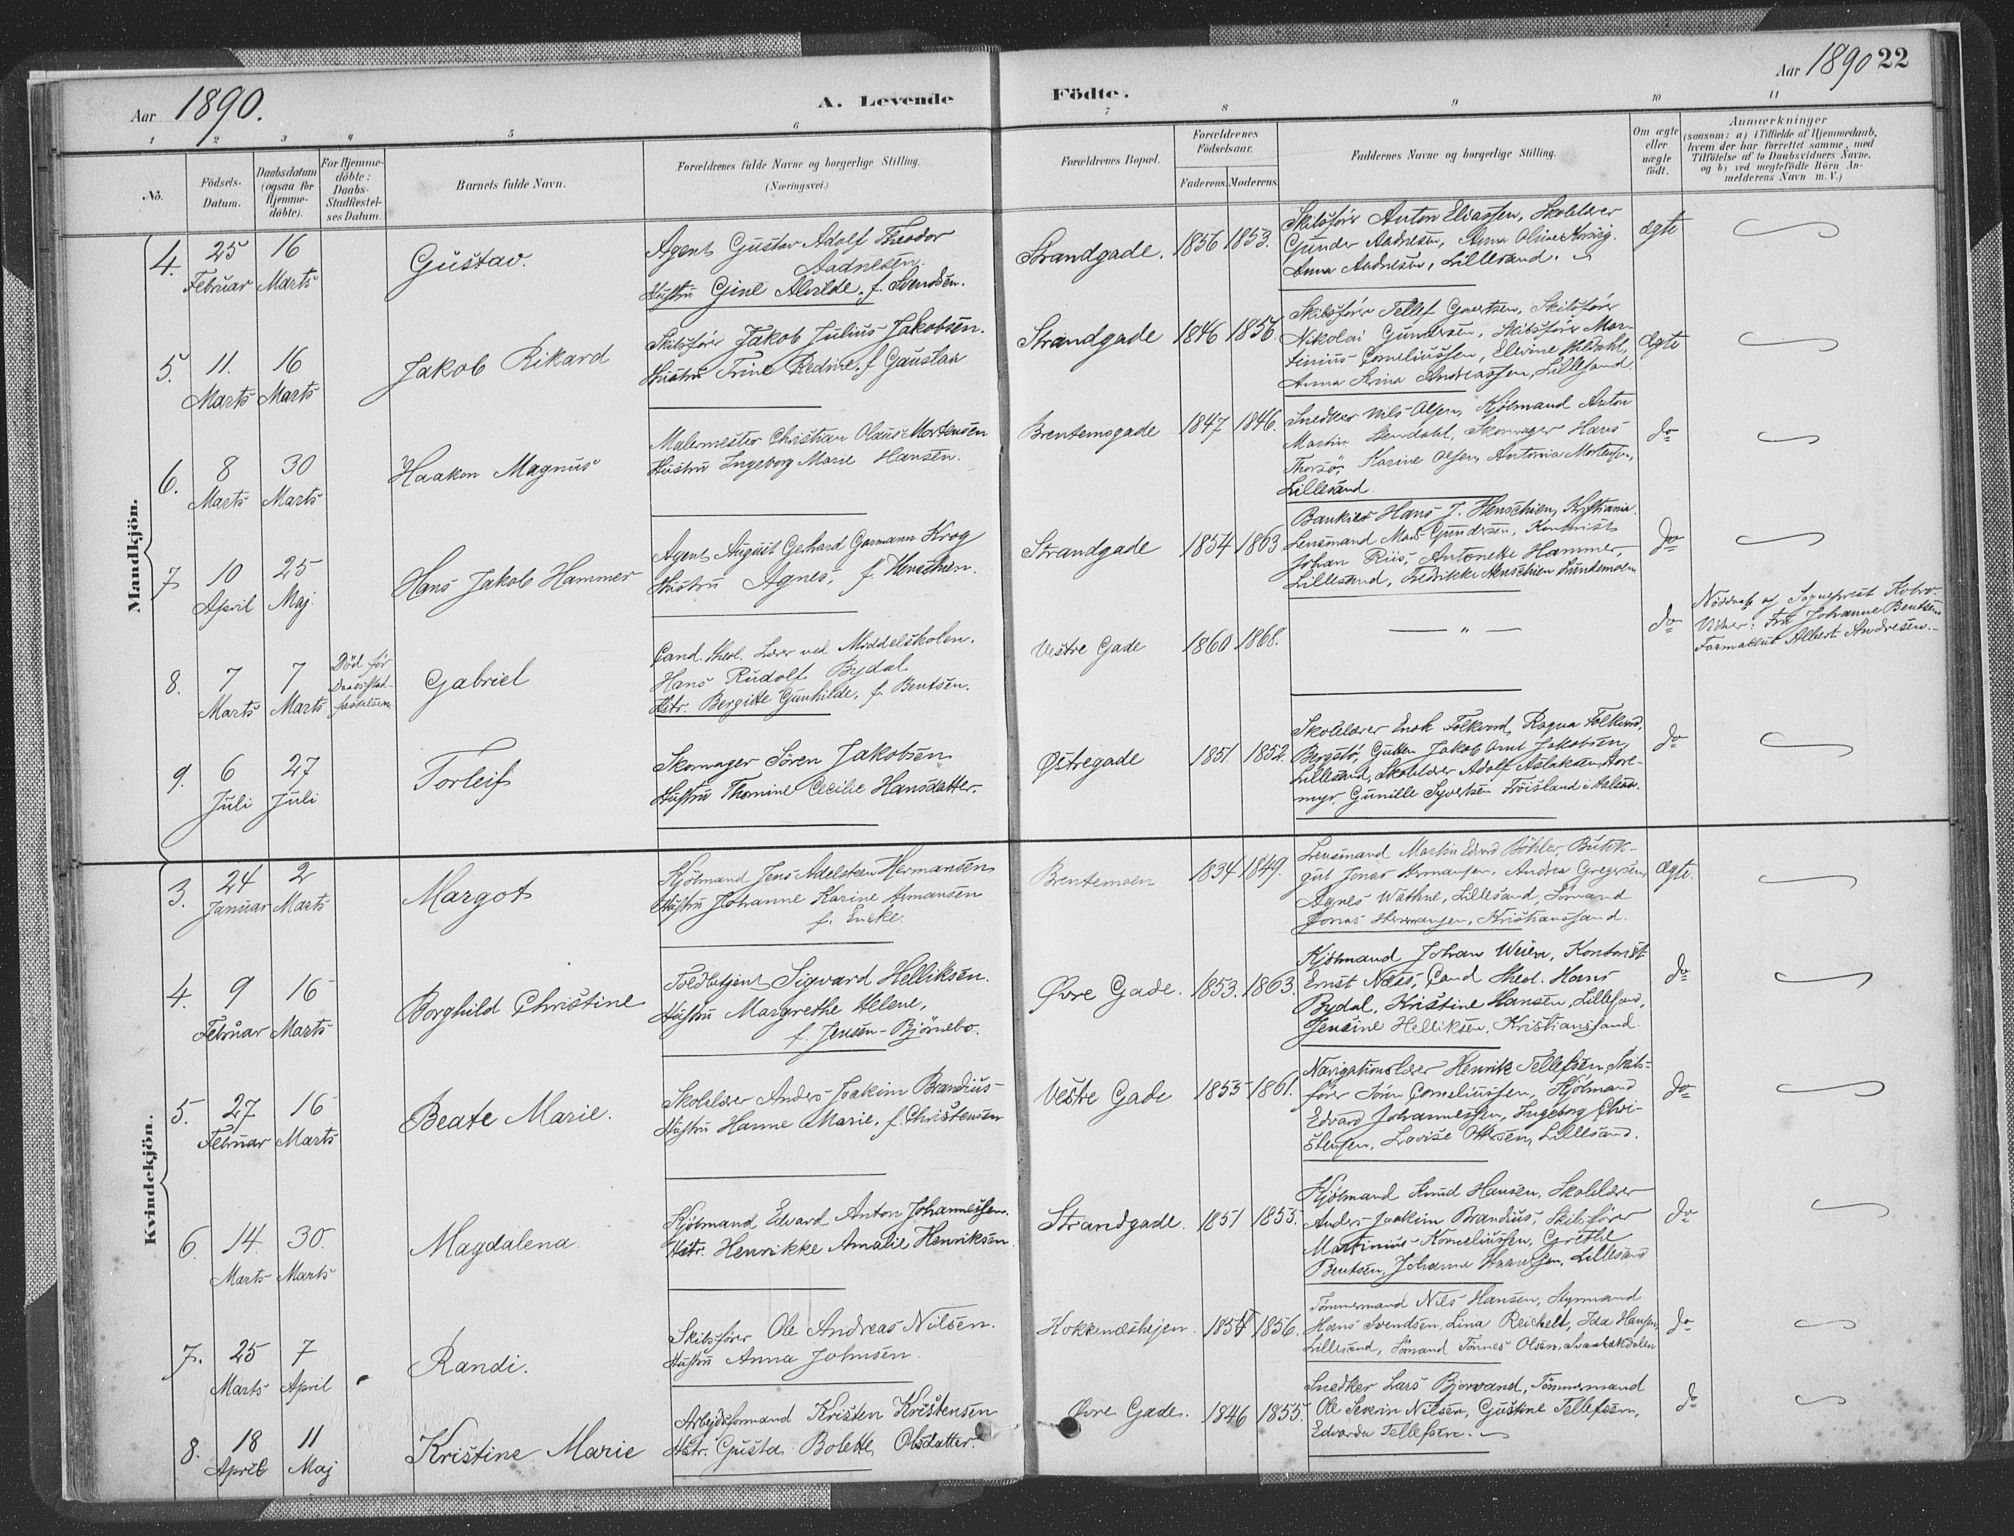 Aar 1890.
A. Levende
Födte.
Aar 1890 22
1 2 3 4 5 6 7 8 9 10 11
No.
Födsels-Datum.
Daabsdatum (ogsaa for Hjemmedöbte).
For Hjemmedöbte: Daabs-Stadfæstelses Datum.
Barnets fulde Navn.
Forældrenes fulde Navne og borgerlige Stilling. (Næringsvei.)
Forældrenes Bopæl.
Forældrenes Födselsaar.
Faderens. Moderens.
Faddernes Navne og borgerlige Stilling.
Om ægte eller uægte födt.
Anmærkninger
(saasom: a) i Tilfælde af Hjemmedaab,
hvem der har forrettet samme, med
Tilföielse af to Daabsvidners Navne.
og b) ved uægtefödte Börn An-
melderens Navn m. V.)
Mandkjön.
4. 25 Februar 16 Marts
Gustav.
Agent Gustav Adolf Theodor
Aadnesen.
Hustru Gine Alvilde, f. Svendsen.
Strandgade. 1856 1853.
Skibsfører Anton Eliassen, Skolelærer
Gunder Aadnesen, Anna Oline
Anna Aadnesen, Lillesand.
ægte
5. 11. Marts 16 Marts
Jakob Rikard
Skibsfører Jakob Julius Jakobsen.
Hustru Trine Redine, f. Gaustad
Strandgade 1846 1856.
Skibsfører Tellef Gjertsen, Skibsfører
Nikolai Gundersen, Skibsfører Mar-
tinius Corneliussen, Elevine
Anna Stina Andreassen, Lillesand
ægte
6. 8 Marts 30 Marts
Haakon Magnus
Malermester Christian Olaus Mortensen
Hustru Ingeborg Marie Hansen.
Brentemogade 1847 1846.
Snedker Nils Olsen, Kjøbmand Anton
Martin Stendahl, Skomager Hans
Karine Olsen, Antonia Mortensen,
Lillesand.
do
7 10 April 25 Maj
Hans Jakob Hammer
Agent August Gerhard Garmann Krog
Hustru Agnes, f. Henschien.
Strandgade 1854 1863
Bankier Hans J. Henschien, Kristiania.
Lensmand Mads Gundersen, Kontorist
Johan Riis, Antonette Hammer,
Lillesand, Fredrikke Henschien Lundemoen
do
8. 7 Marts 7 Marts
Død før
Daabsstad-
fæstelsen
Gabriel
Cand. theol. Lærer ved Middelskolen.
Hans Rudolf Bydal
Hstr. Bergitte Gunhilde, f. Bentsen.
Vestre Gade 1860 1868.
— " —
do
Nøddaab af Sognepræst Kobro.
Vidner: Fru Johanne Bentsen
Farmaceut Albert Andresen.
9. 6 Juli 27 Juli
Torleif
Skomager Søren Jakobsen
Hustru Thomine Cecilie Hansdatter.
Østregade 1851. 1852.
Skolelærer Enok Folkvord, Ragna Folkvord,
Bergstø, Gutten Jakob Arnt Jakobsen,
Lillesand, Skolelærer Adolf Aslaksen, Aore-
myr, Gunille Syvertsen Frøisland i Halsaa.
do
Kvindekjön.
3. 24 Januar 2 Marts
Margot
Kjøbmand Jens Adelsteen Hermansen
Hustru Johanne Karine Hermansen
f. Encke.
Brentemoen 1834 1849.
Lensmand Martin Edvard Böhler, Butik-
gut Jonas Hermansen, Andrea Gregersen,
Agnes Wathne, Lillesand, Sømand
Jonas Hermansen, Kristianssand.
Ægte.
4. 9 Februar 16 Marts
Borghild Christine
Toldbetjent Sigvard Helliksen.
Hustru Margrethe Helene,
f. Jensen-Bjørnebo.
Øvre Gade. 1853. 1863.
Kjøbmand Johan Weien, Kontorist
Ernst Næss, Cand. theol. Hans
Bydal, Kristine Hansen, Lillesand,
Jensine Helliksen, Kristianssand.
do
5. 27 Februar 16 Marts
Beate Marie.
Skolelærer Anders Joakim Brandius
Hustru Hanne Marie, f. Christensen
Vestre Gade 1855 1861.
Navigationslærer Henrik Tellefsen, Skibs-
fører Søren Corneliussen, Kjøbmand
Edvard Johannessen, Ingeborg Chri-
stensen, Lovise Ottesen, Lillesand.
do
6. 14 Marts 30. Marts
Magdalena.
Kjøbmand Edvard Anton Johannessen.
Hstr. Henrikke Amalie Henriksen.
Strandgade. 1851 1855.
Kjøbmand Knud Hansen, Skolelærer
Anders Joakim Brandius, Skibsfører
Martinius Korneliussen, Grethe
Bentsen, Johanne Haavsen, Lillesand
do
7. 25 Marts 7 April
Randi.
Skibsfører Ole Andreas Nilsen.
Hustru Anna Johnsen.
Kokkenæshejen. 1854 1856.
Tømmermand Nils Hansen, Styrmand
Hans Svendsen, Lina Reichelt, Ida Hansen,
Lillesand, Sømand Tønnes Olsen,
do
8. 18 April 11 Maj
Kristine Marie
Arbejdsformand Kristen Kristensen
Hstr. Gusta Bolette Olsdatter.
Øvre Gade. 1846 1855.
Snedker Lars Bjorvand, Tømmermand
Ole Severin Nilsen, Gustine Tellefsen,
Edvarda Tellefsen.
do